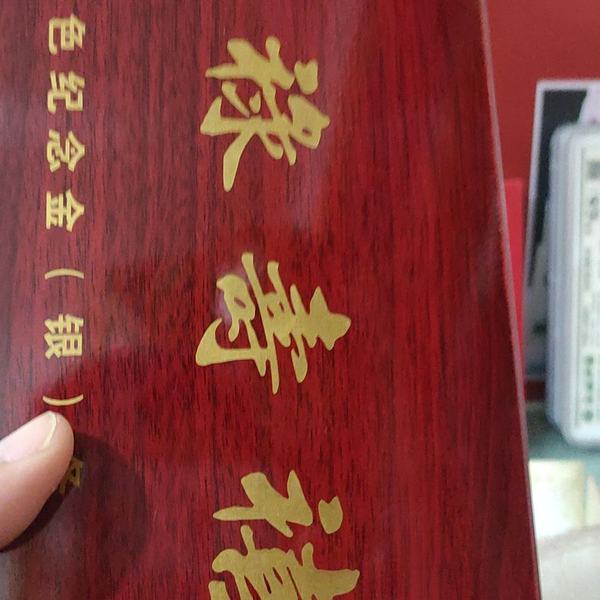 禄寿禧
色纪念金（银）